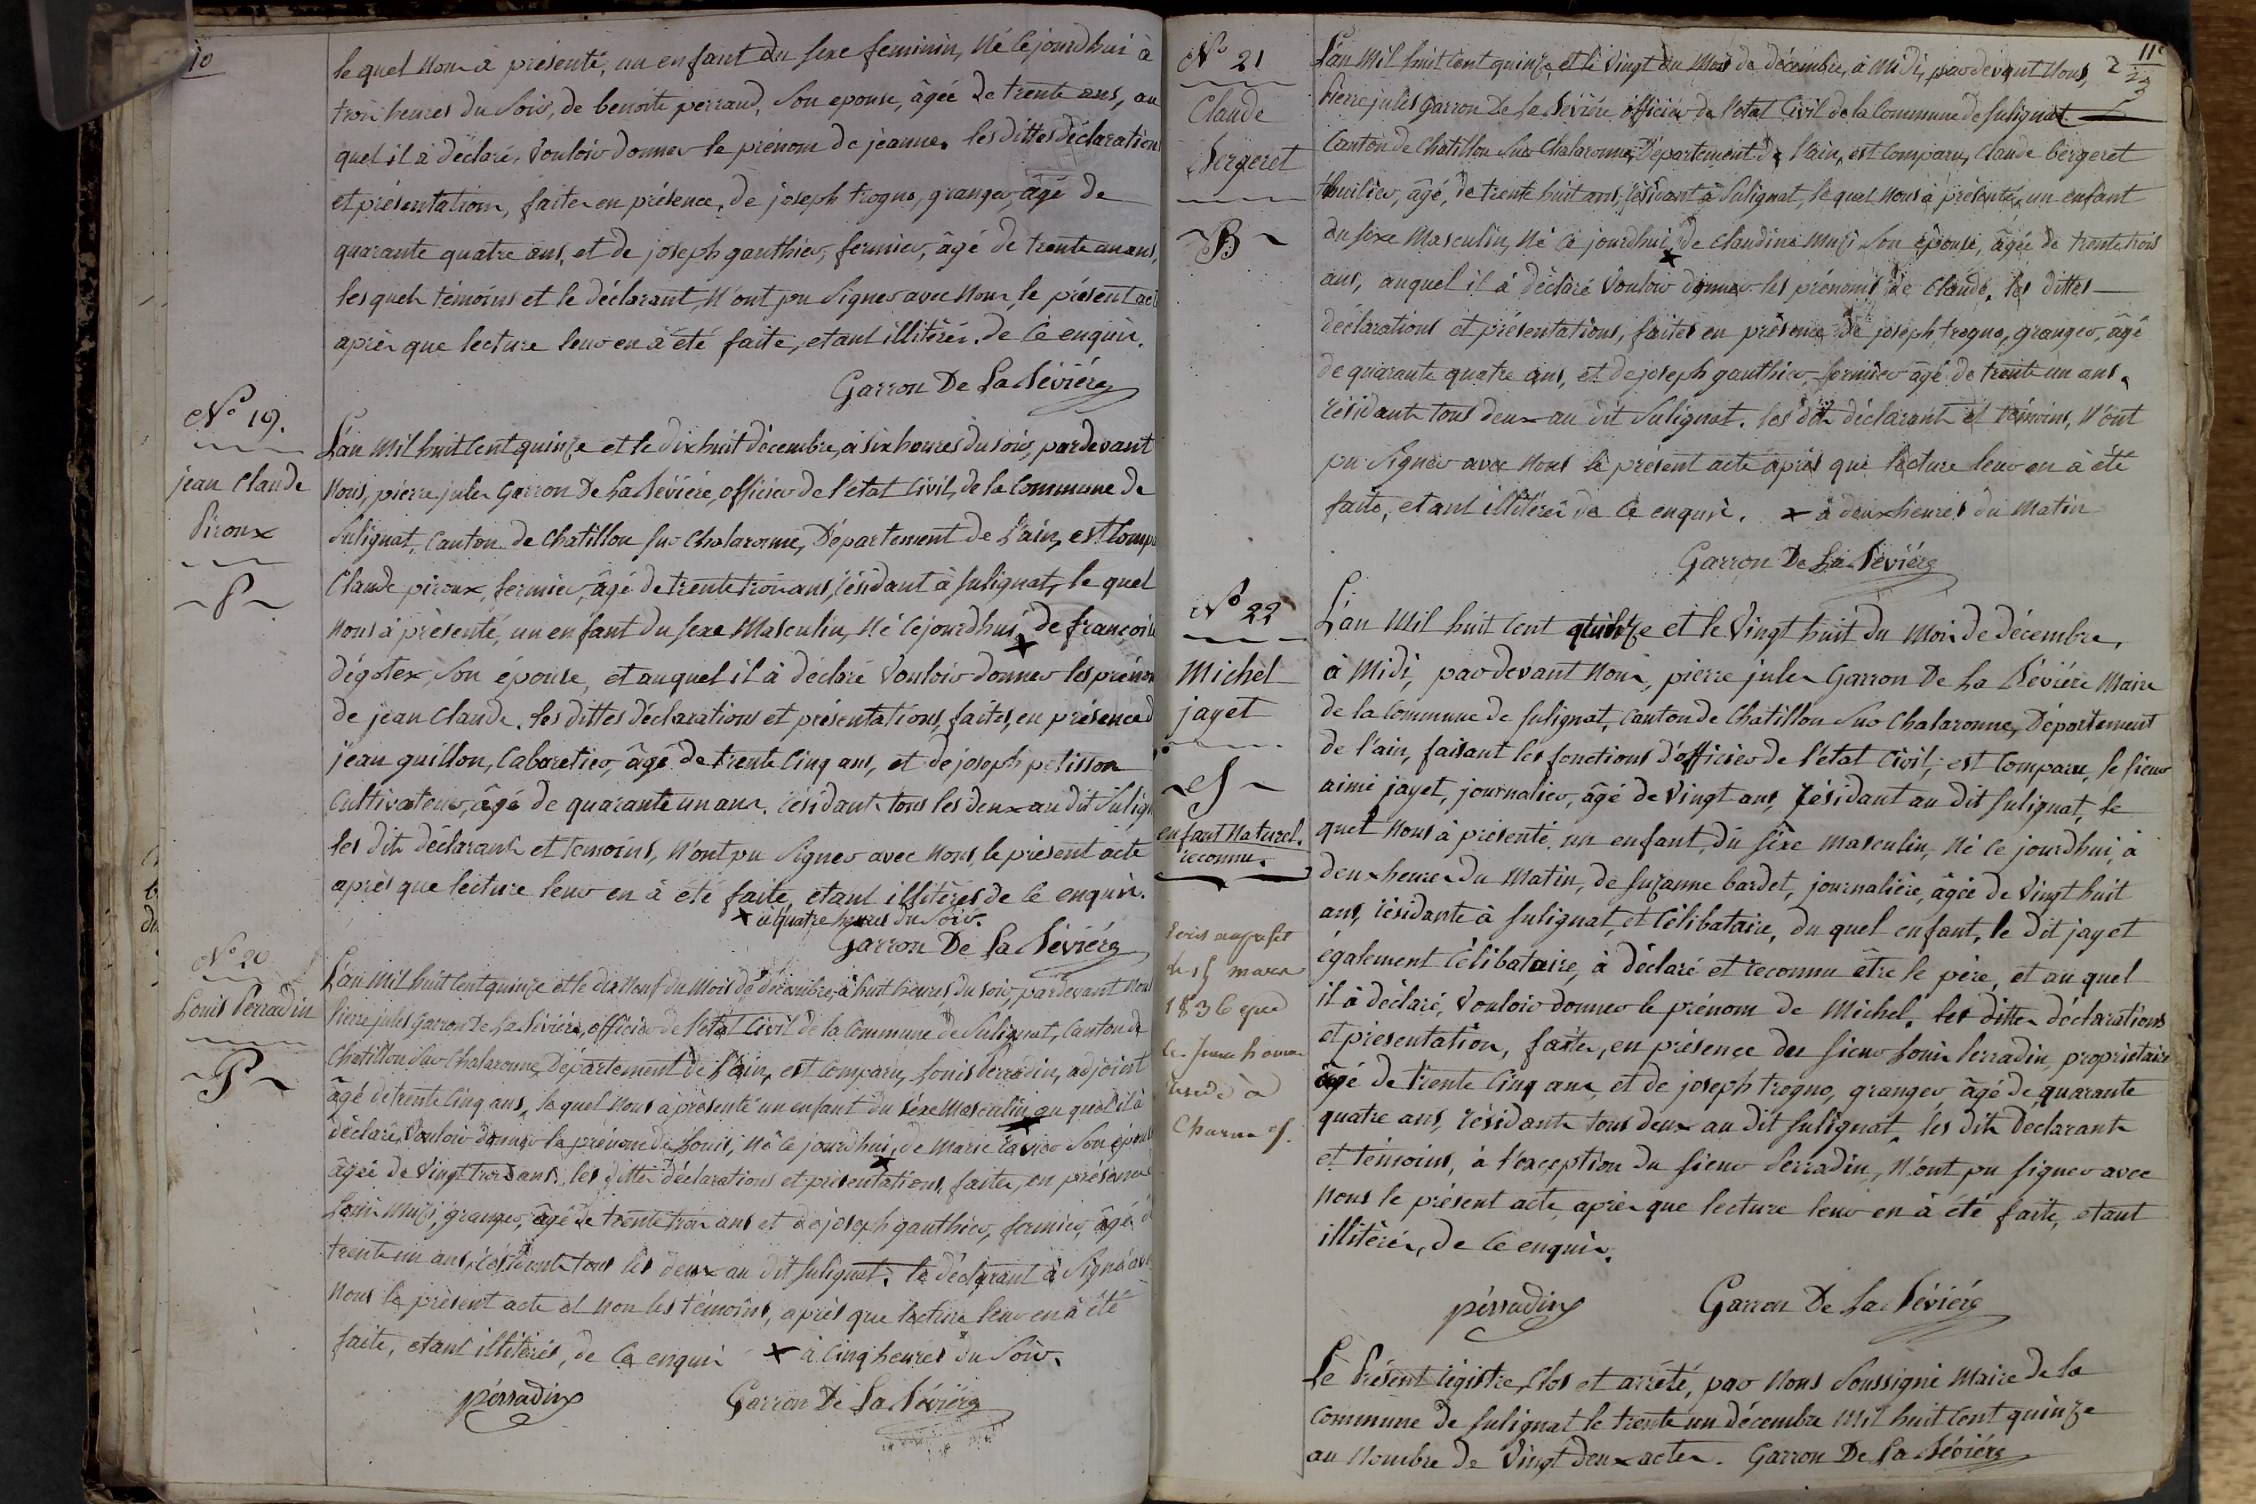 10
le quel nous à présenté, un enfant du sexe feminin, né cejourdhui à
trois heures du soir, de benoite perraud, son epouse, âgée de trente ans, au
quel il à déclaré, vouloir donner le prénom de jeanne. les dittes déclarations
et présentations, faites en présence, de joseph trogno, granger, âgé de
quarante quatre ans, et de joseph gauthier, fermier, âgé de trente un ans,
les quels témoins et le déclarant, n'ont pu signer avec nous, le présent acte
après que lecture leur en à été faite, etant illitérés. de ce enquis.
Garron De La Sévière
N° 19.
jean Claude
Piroux
P
L'an mil huit cent quinze et le dix huit décembre, à six heures du soir, pardevant
nous, pierre jules Garron De La Sévière, officier de l'etat civil, de la Commune de
Sulignat, canton de Chatillon sur Chalaronne, Département de l'ain, est comp
Claude piroux, fermier, âgé de trente trois ans, résidant à sulignat, le quel
nous à présenté, un enfant du sexe masculin, né cejourdhui x de francoise
dégotex, son épouse, et auquel il à déclaré vouloir donner les prénoms
de jean claude. les dittes déclarations et présentations, faites, en présence d
jean guillon, cabaretier, âgé de trente cinq ans, et de joseph pelisson
cultivateur, âgé de quarante un ans. résidants tous les deux au dit Sulign
les dits déclarants et temoins, n'ont pu signer avec nous, le présent acte
après que lecture leur en à été faite, etant illitérés de ce enquis.
x à quatre heures du soir.
Garron De La Sévière
N° 20
Louis Perradin
P
L'an mil huit cent quinze et le dix neuf du mois de décembre, à huit heures du soir, pardevant nous
Pierre jules Garron De La Sévière, officier de l'etat civil de la commune de Sulignat, canton de
Chatillon sur Chalaronne, Département de l'ain, est comparu, Louis Perradin, adjoint
âgé de trente cinq ans, le quel nous à présenté un enfant du séxe masculin au quel il à
déclaré, vouloir donner le prénom de Louis, né ce jourdhui x de marie son épouse
âgée de vingt trois ans. les dittes déclarations et présentations, faites, en présence
Louis muzi, granger, âgé de trente trois ans et de joseph gauthier, fermier, âgé d
trente un ans, résidants tous les deux au dit sulignat. le déclarant à signé avec
nous le présent acte et non les témoins, après que lecture leur en à été
faite, etant illitérés, de ce enquis x à cinq heures du soir.
pérradin Garron De La Sévière
11e
N° 21
Claude
Bergeret
B
L'an mil huit cent quinze, et le vingt du mois de décembre, à midi, pardevant nous,
Pierre jules Garron De La Sévière officier de l'etat civil de la Commune de sulignat
Canton de Chatillon sur Chalaronne, Département de l'ain, est comparu, Claude bergeret
thuilier, âgé, de trente huit ans, résidant à Sulignat, le quel nous à présenté, un enfant
du sexe masculin, né ce jourdhui x de claudine muzi son épouse, âgée de trente trois
ans, auquel il à déclaré vouloir donner les prénoms de Claude. les dittes
déclarations et présentations, faites en présence de joseph trogno, granger, âgé
de quarante quatre ans, et de joseph gauthier, fermier âgé de trente un ans.
résidants tous deux au dit Sulignat. les dits déclarant et témoins, n'ont
pu signer avec nous le présent acte après que lecture leur en à été
faite, etant illitérés de ce enquis. x à deux heures du matin
Garron De La Sévière
N° 22
Michel
jayet
J
enfant naturel.
reconnu.
L'an mil huit cent quinze et le vingt huit du mois de décembre,
à midi, pardevant nous, pierre jules Garron De La Sévière maire
de la commune de sulignat, canton de Chatillon sur Chalaronne, Département
de l'ain, faisant les fonctions d'officier de l'état civil, est comparu, le sieur
aimé jayet, journalier, âgé de vingt ans, résidant au dit sulignat, le
quel nous à présenté, un enfant, du séxe masculin, né ce jourdhui, à
deux heures du matin, de suzanne bardet, journalière, âgée de vingt huit
ans, résidante à sulignat, et célibataire, du quel enfant, le dit jayet
également célibataire, à déclaré et reconnu être le père, et au quel
il à déclaré, vouloir donner le prénom de Michel. les dittes déclarations
et présentation, faites, en présence des sieurs Louis Perradin, propriétaire
âgé de trente cinq ans, et de joseph trogno, granger âgé de quarante
quatre ans, résidants tous deux au dit sulignat, les dits déclarants
et témoins, à l'exception du sieur Perradin, n'ont pu signer avec
nous le présent acte, après que lecture leur en à été faite, etant
illitérés, de ce enquis.
mars
1836 que
le jeune homme
pérradin Garron De La Sévière
Le Présent régistre, clos et arrêté, par nous soussigné maire de la
commune de sulignat le trente un décembre mil huit cent quinze
au nombre de vingt deux actes. Garron De La Sévière